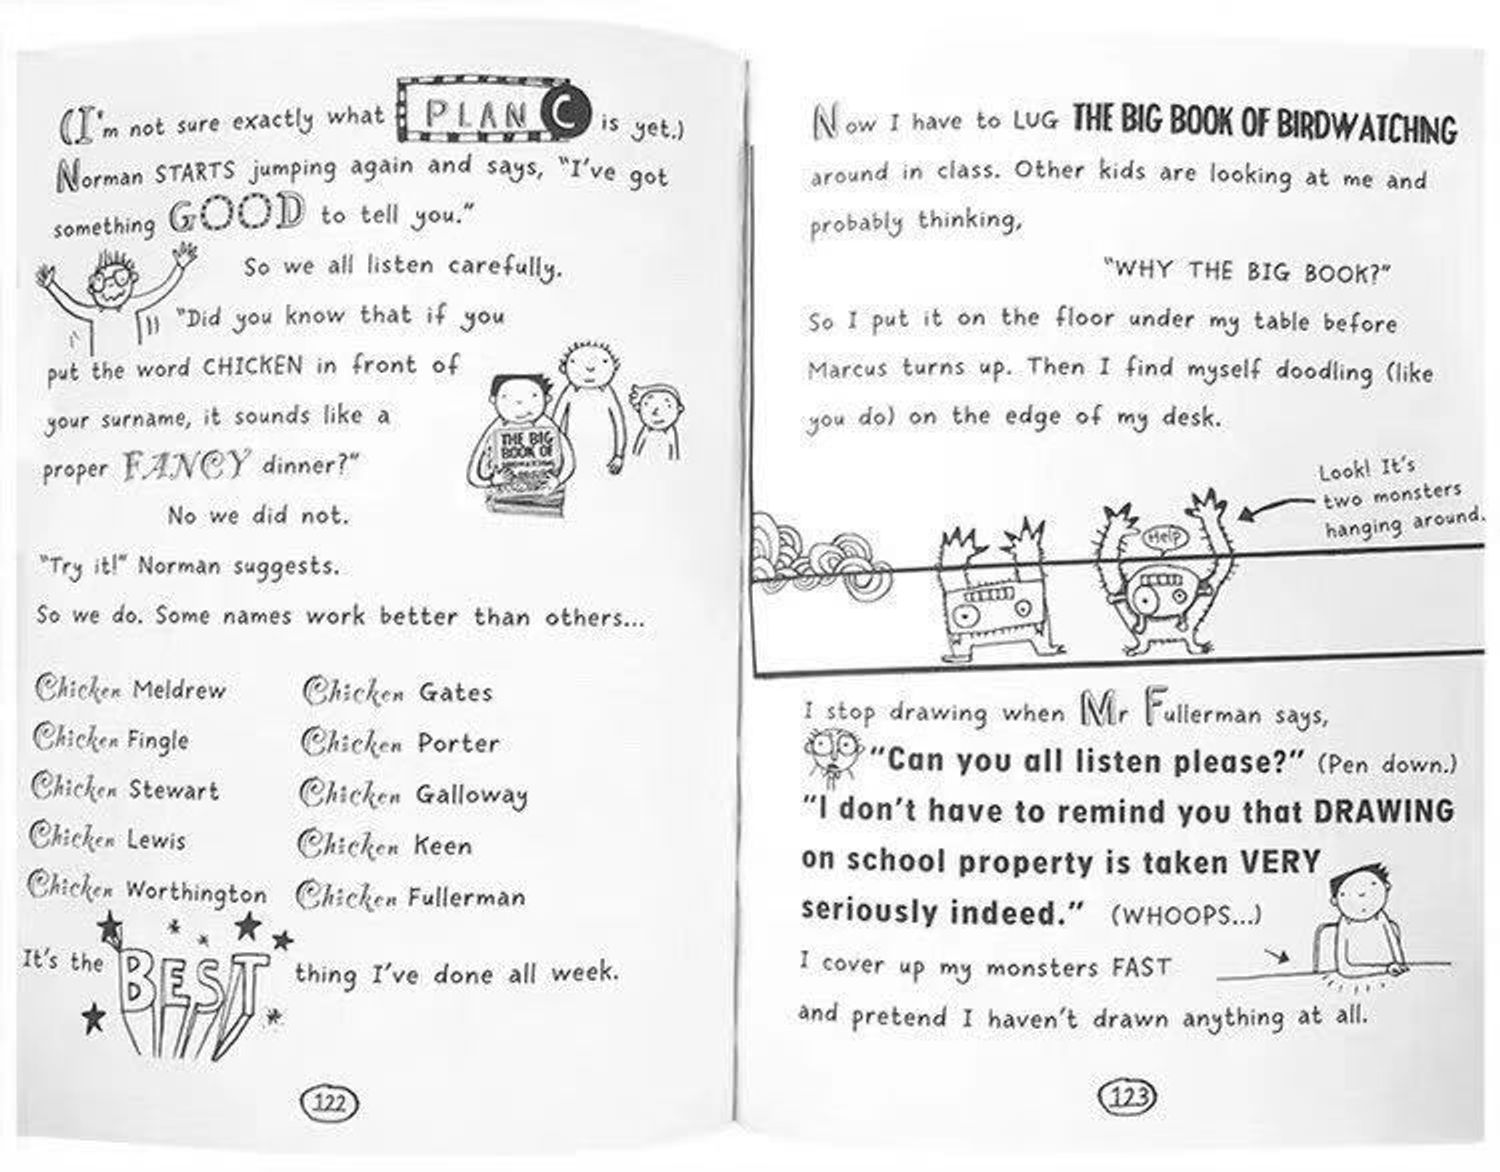 (I'm not sure exactly what PLAN C is yet.)
Norman STARTS jumping again and says, "I've got
something GOOD to tell you."
So we all listen carefully.
"Did you know that if you
put the word CHICKEN in front of
your surname, it sounds like a
proper FANCY dinner?"
THE BIG
BOOK OF
BIRDWATCHING
No we did not.
"Try it!" Norman suggests.
So we do. Some names work better than others...
Chicken Meldrew
Chicken Fingle
Chicken Stewart
Chicken Lewis
Chicken Worthington
Chicken Gates
Chicken Porter
Chicken Galloway
Chicken Keen
Chicken Fullerman
It's the BEST thing I've done all week.
122
Now I have to LUG THE BIG BOOK OF BIRDWATCHING
around in class. Other kids are looking at me and
probably thinking,
"WHY THE BIG BOOK?"
So I put it on the floor under my table before
Marcus turns up. Then I find myself doodling (like
you do) on the edge of my desk.
Look! It's
two monsters
hanging around.
Help
I stop drawing when Mr Fullerman says,
"Can you all listen please?" (Pen down.)
"I don't have to remind you that DRAWING
on school property is taken VERY
seriously indeed." (WHOOPS...)
I cover up my monsters FAST
and pretend I haven't drawn anything at all.
123